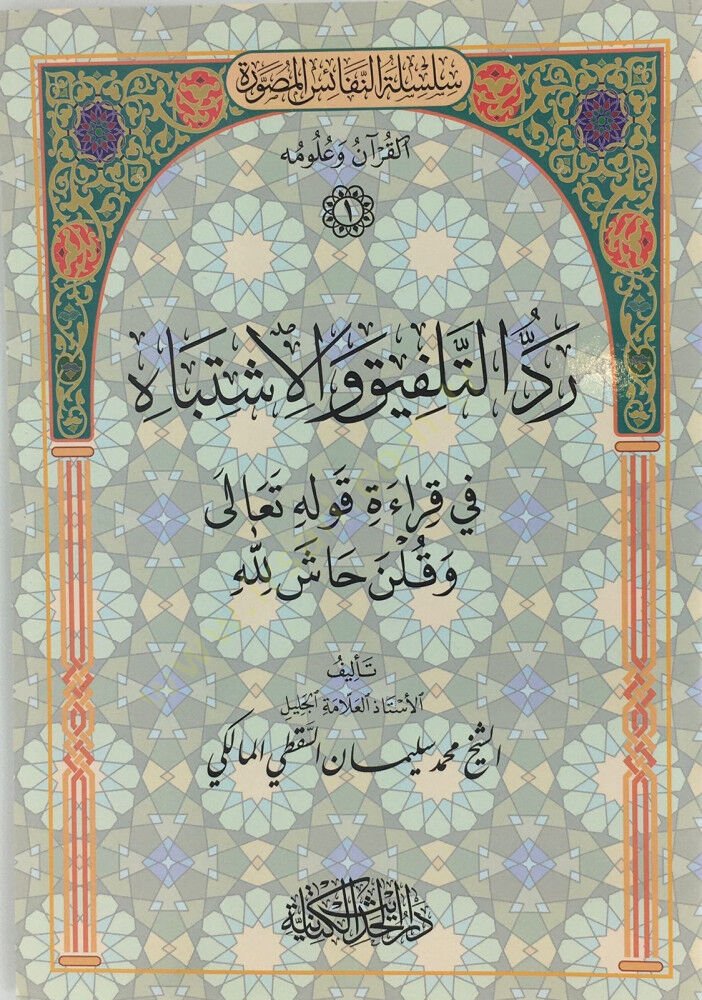 سِلْسِلَةُ النَّفَائِسِ المُصَوَّرَةِ
القُرْآنُ وَعُلُومُه
١
رَدُّ التَّلْفِيقِ وَالِاشْتِبَاهِ
فِي قِرَاءَةِ قَولِهِ تَعَالَى
وَقُلْنَ حَاشَ لِلّٰهِ
تَأليفُ
الأُسْتَاذِ العَلَّامَةِ الجَلِيلِ
الشيخ محمد سليمان السَّقَطِي المالكي
دار الحديث الكتانية